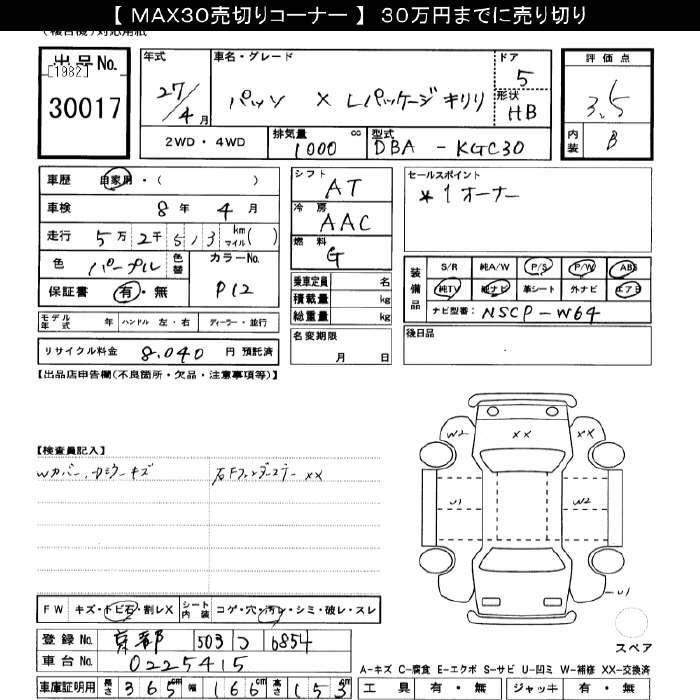 【 MAX30売切りコーナー 】 30万円までに売り切り
出品No.
[1982]
30017
年式
27/4月
車名・グレード
パッソ X Lパッケージ キリリ
ドア
5
形状
HB
評価点
3.5
内装
B
2WD・4WD
排気量
1000 cc
型式
DBA - KGC30
車歴 自家用・( )
車検 8年 4月
走行 5万 2千 5, 3 km マイル( )
色 パープル 色替
カラーNo.
P12
保証書 有・無
モデル年式 年 ハンドル 左・右 ディーラー・並行
リサイクル料金 8,040 円 預託済
シフト
AT
冷房
AAC
燃料
G
乗車定員 名
積載量 kg
総重量 kg
名変期限
月 日
セールスポイント
*1オーナー
装備品
S/R 純A/W P/S P/W ABS
純TV 純ナビ 革シート 外ナビ エアB
ナビ型番: NSCP-W64
後日品
【出品店申告欄(不良箇所・欠品・注意事項等)】
【検査員記入】
Wカバー、
キズ
XX
W2 XX XX
U1 W2
U1
スペア
FW キズ・トビ石・割レX シート内装 コゲ・穴・汚レ・シミ・破レ・スレ
登録No. 京都 503 つ 6854
車台No. 0225415
車庫証明用 長さ 365cm 幅 166cm 高さ 153cm
A-キズ C-腐食 E-エクボ S-サビ U-凹ミ W-補修 XX-交換済
工具 有・無 ジャッキ 有・無